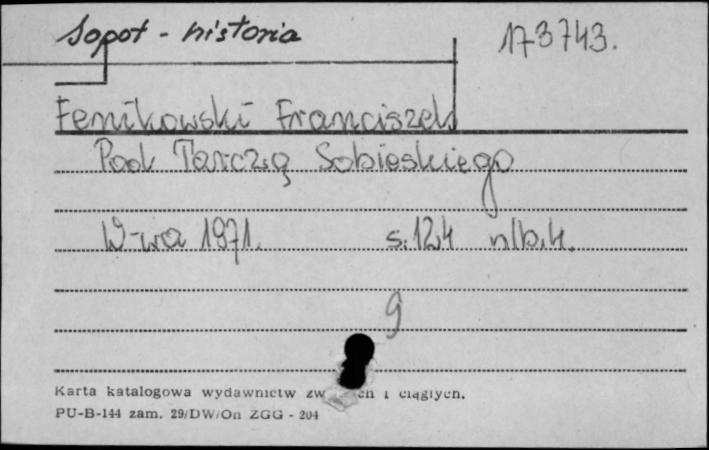 Sopot - historia 173743.
Fenikowski Franciszek
Pod Tarczą Sobieskiego
W-wa 1971. s. 124 nlb. 4.
9
Karta katalogowa wydawnictw zw ch i ciągłych.
PU-B-144 zam. 29/DW/On ZGG - 204